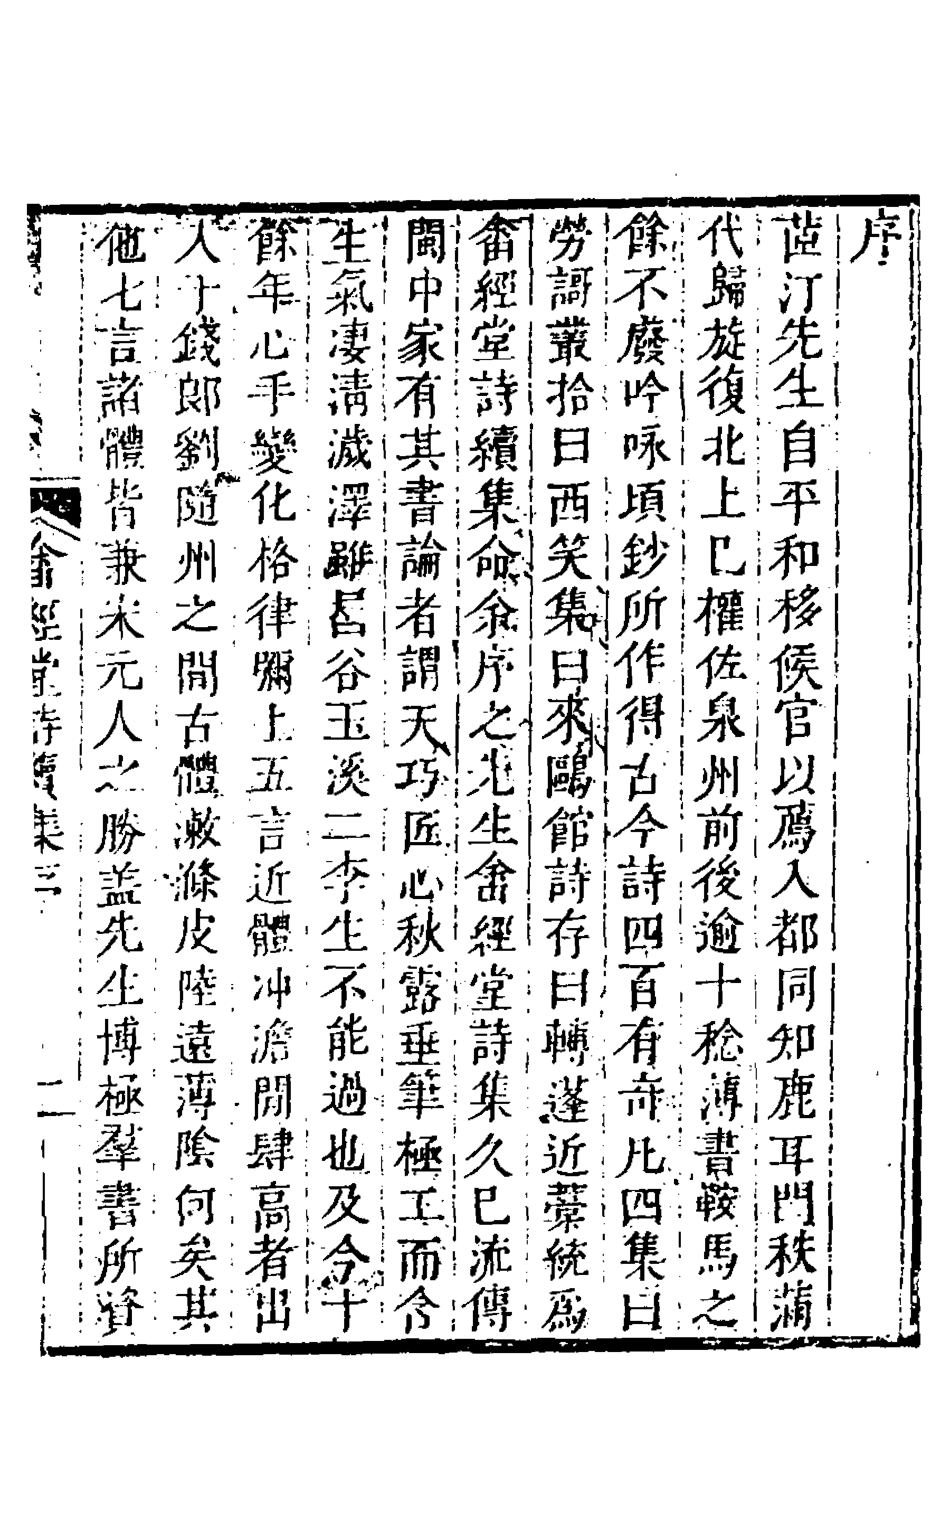 序
茝汀先生自平和移侯官以薦入都同知鹿耳門秩滿
代歸旋復北上已權佐泉州前後逾十稔薄書鞍馬之
餘不廢吟咏頃鈔所作得古今詩四百有奇凡四集曰
勞謌叢拾曰西笑集曰來鷗館詩存曰轉蓬近藁統爲
畬經堂詩續集命余序之先生畬經堂詩集久已流傳
閩中家有其書論者謂天巧匠心秋露垂筆極工而含
生氣凄清濊澤雖昌谷玉溪二李生不能過也及今十
餘年心手變化格律彌上五言近體冲澹閒肆高者出
入十錢郎劉隨州之間古體潄滌皮陸遠薄陰何矣其
他七言諸體皆兼宋元人之勝盖先生博極羣書所資
畬經堂詩續集序
二